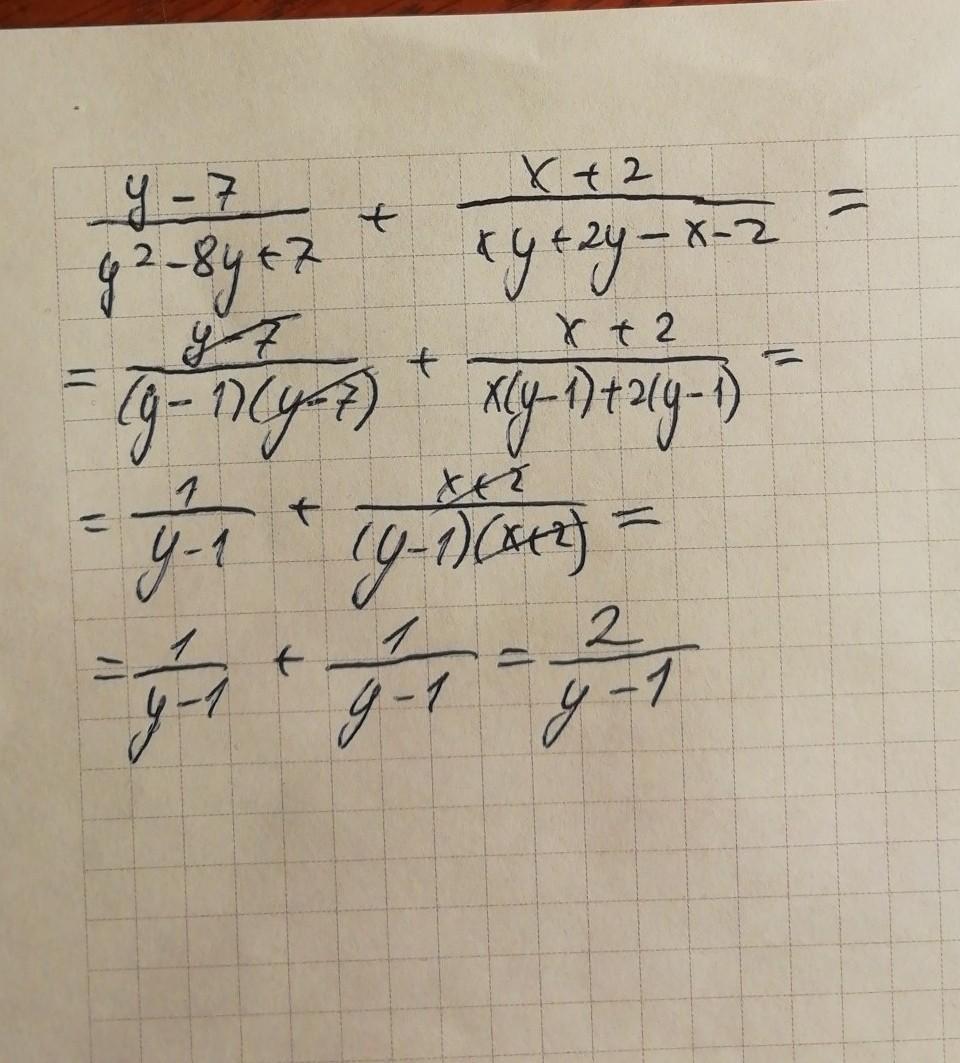 y - 7 / y² - 8y + 7 + x + 2 / xy + 2y - x - 2 =
= y - 7 / (y - 1)(y - 7) + x + 2 / x(y - 1) + 2(y - 1) =
= 1 / y - 1 + x + 2 / (y - 1)(x + 2) =
= 1 / y - 1 + 1 / y - 1 = 2 / y - 1